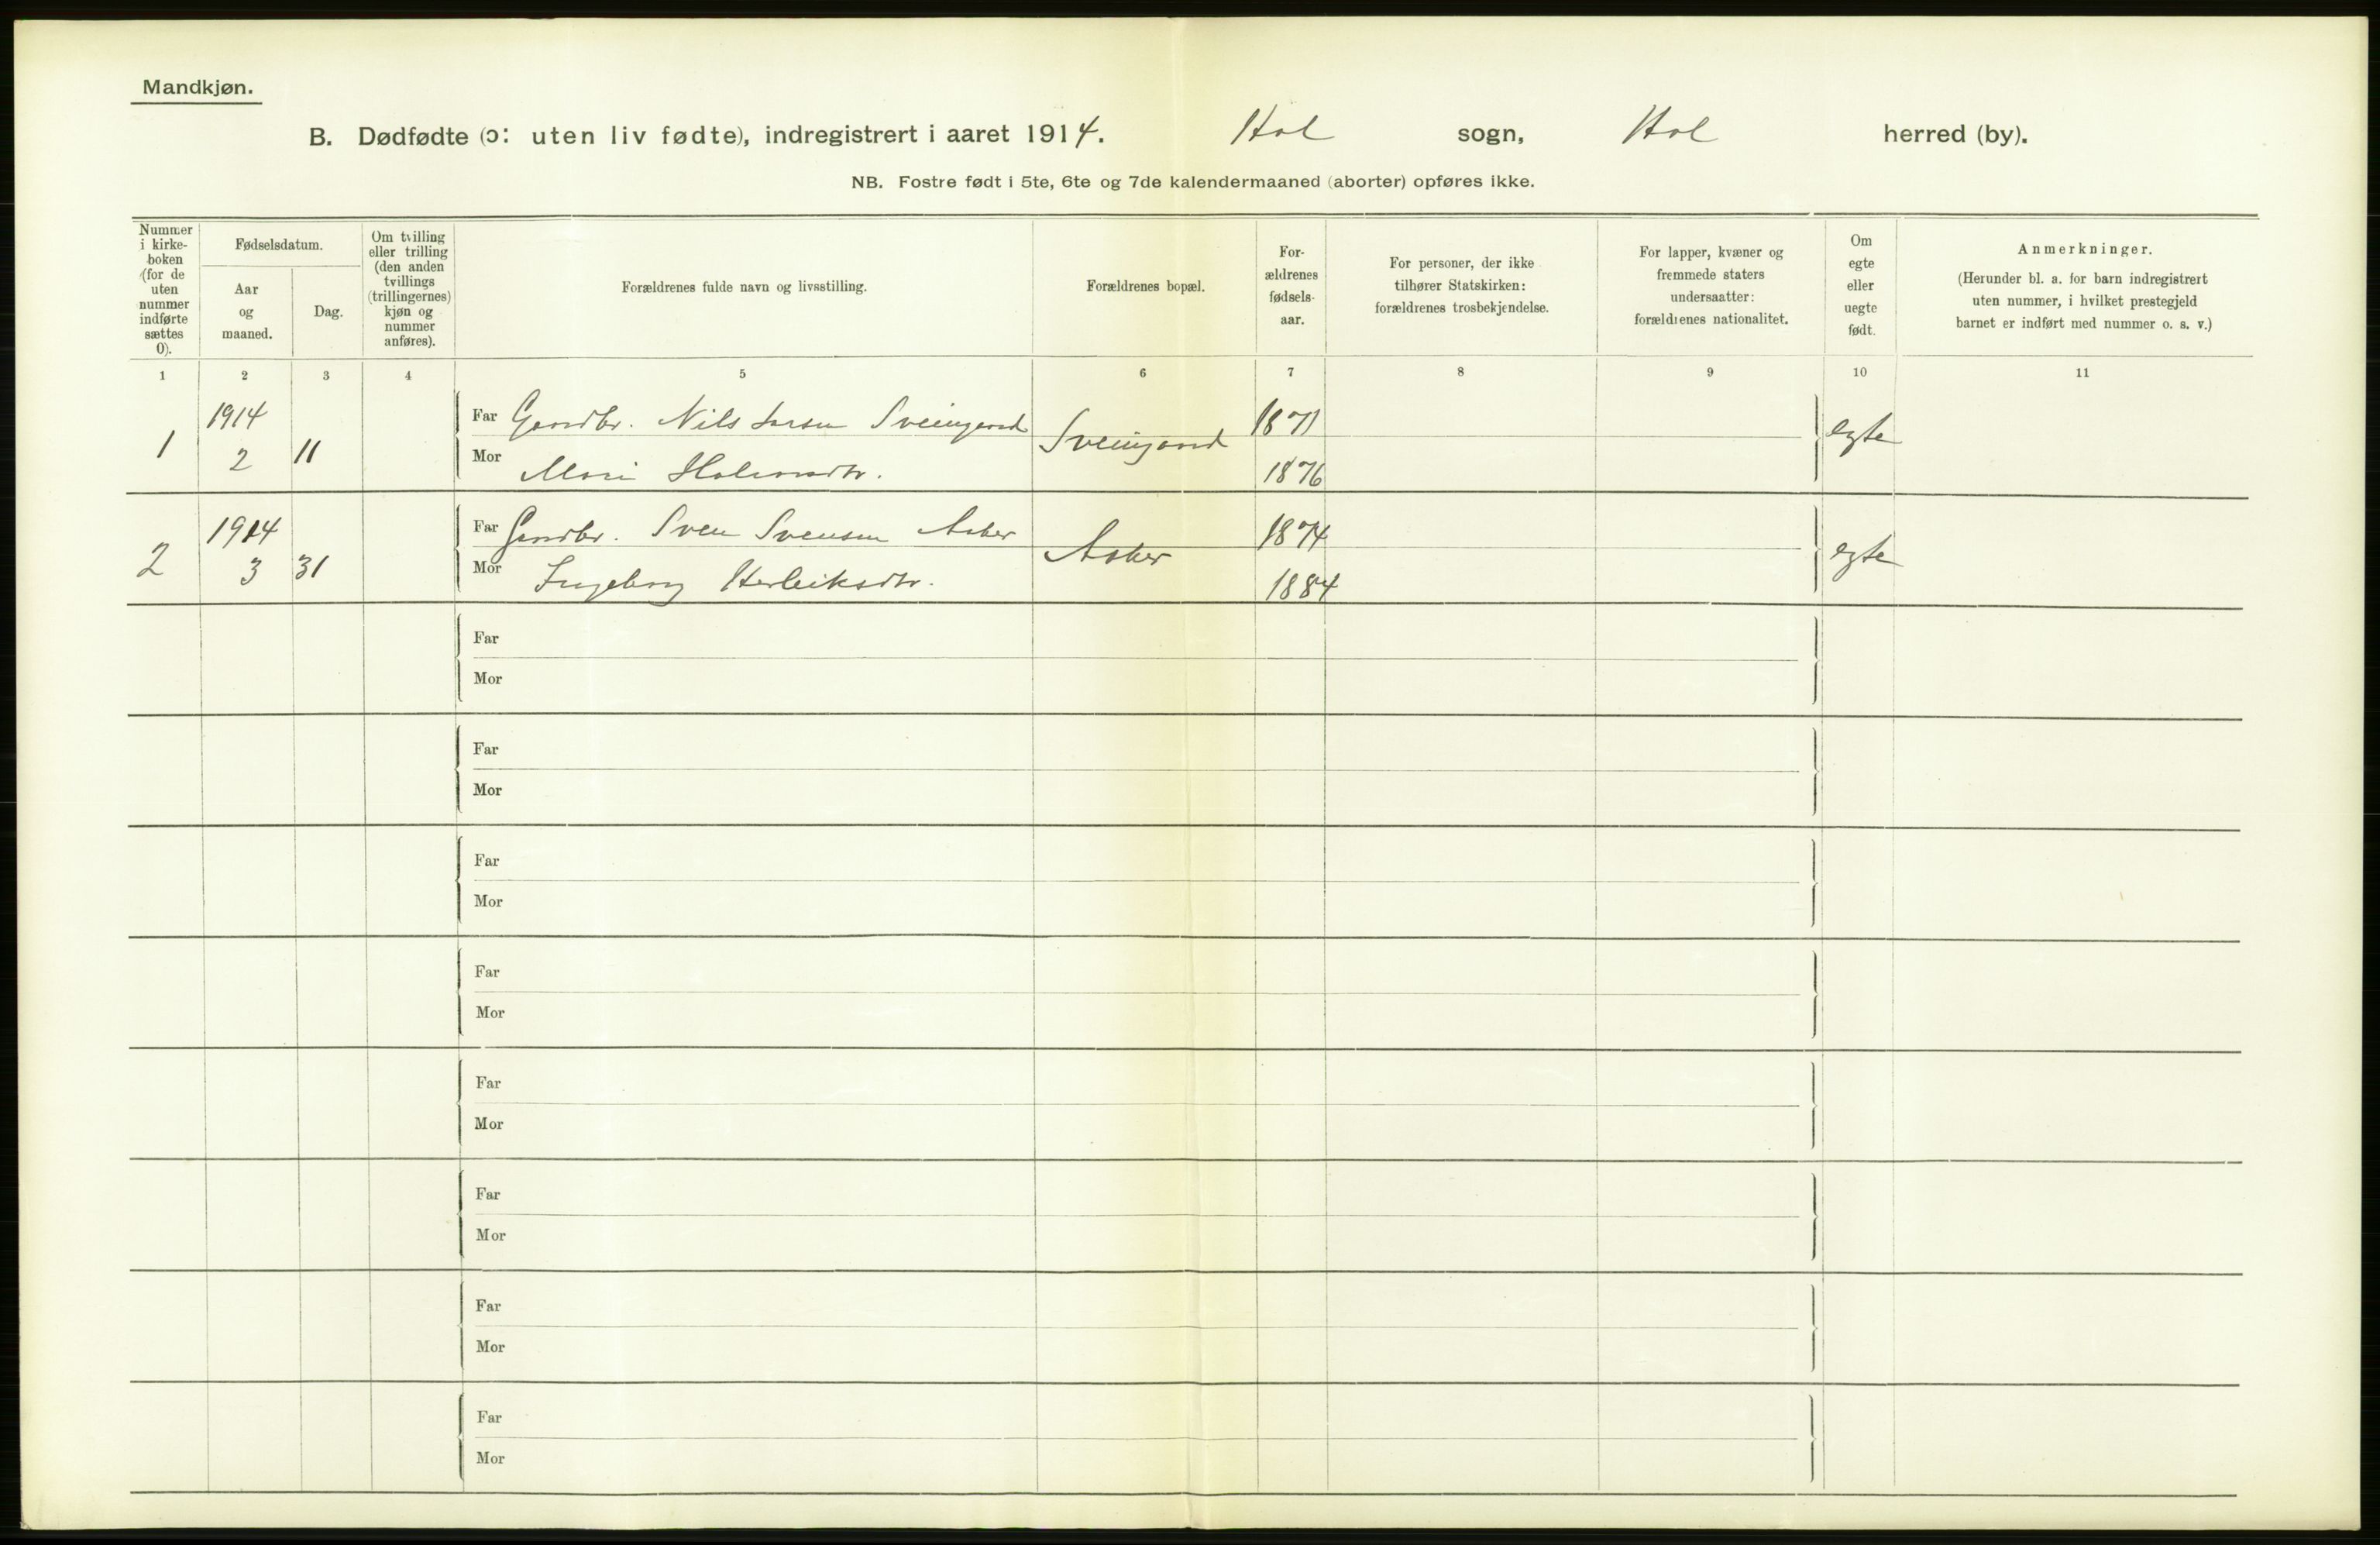 Mandkjøn.
B. Dødfødte (ɔ: uten liv fødte), indregistrert i aaret 1914. Hol sogn, Hol herred (by).
NB. Fostre født i 5te, 6te og 7de kalendermaaned (aborter) opføres ikke.
Nummer
i kirke-
boken
(for de
uten
nummer
indførte
sættes
0).
Fødselsdatum.
Aar
og
maaned.
Dag.
Om tvilling
eller trilling
(den anden
tvillings
(trillingernes)
kjøn og
nummer
anføres).
Forældrenes fulde navn og livsstilling.
Forældrenes bopæl.
For-
ældrenes
fødsels-
aar.
For personer, der ikke
tilhører Statskirken:
forældrenes trosbekjendelse.
For lapper, kvæner og
fremmede staters
undersaatter:
forældrenes nationalitet.
Om
egte
eller
uegte
født.
Anmerkninger.
(Herunder bl. a. for barn indregistrert
uten nummer, i hvilket prestegjeld
barnet er indført med nummer o. s. v.)
1 2 3 4 5 6 7 8 9 10 11
1 1914 2 11
Far Gaardbr. Nils Larsen Sveingard
Mor
Sveingard 1871 1876 egte
2 1914 3 31
Far Gaardbr. Sven Svensen
Mor Ingeborg Herleiksdtr.
1874 1884 egte
Far
Mor
Far
Mor
Far
Mor
Far
Mor
Far
Mor
Far
Mor
Far
Mor
Far
Mor